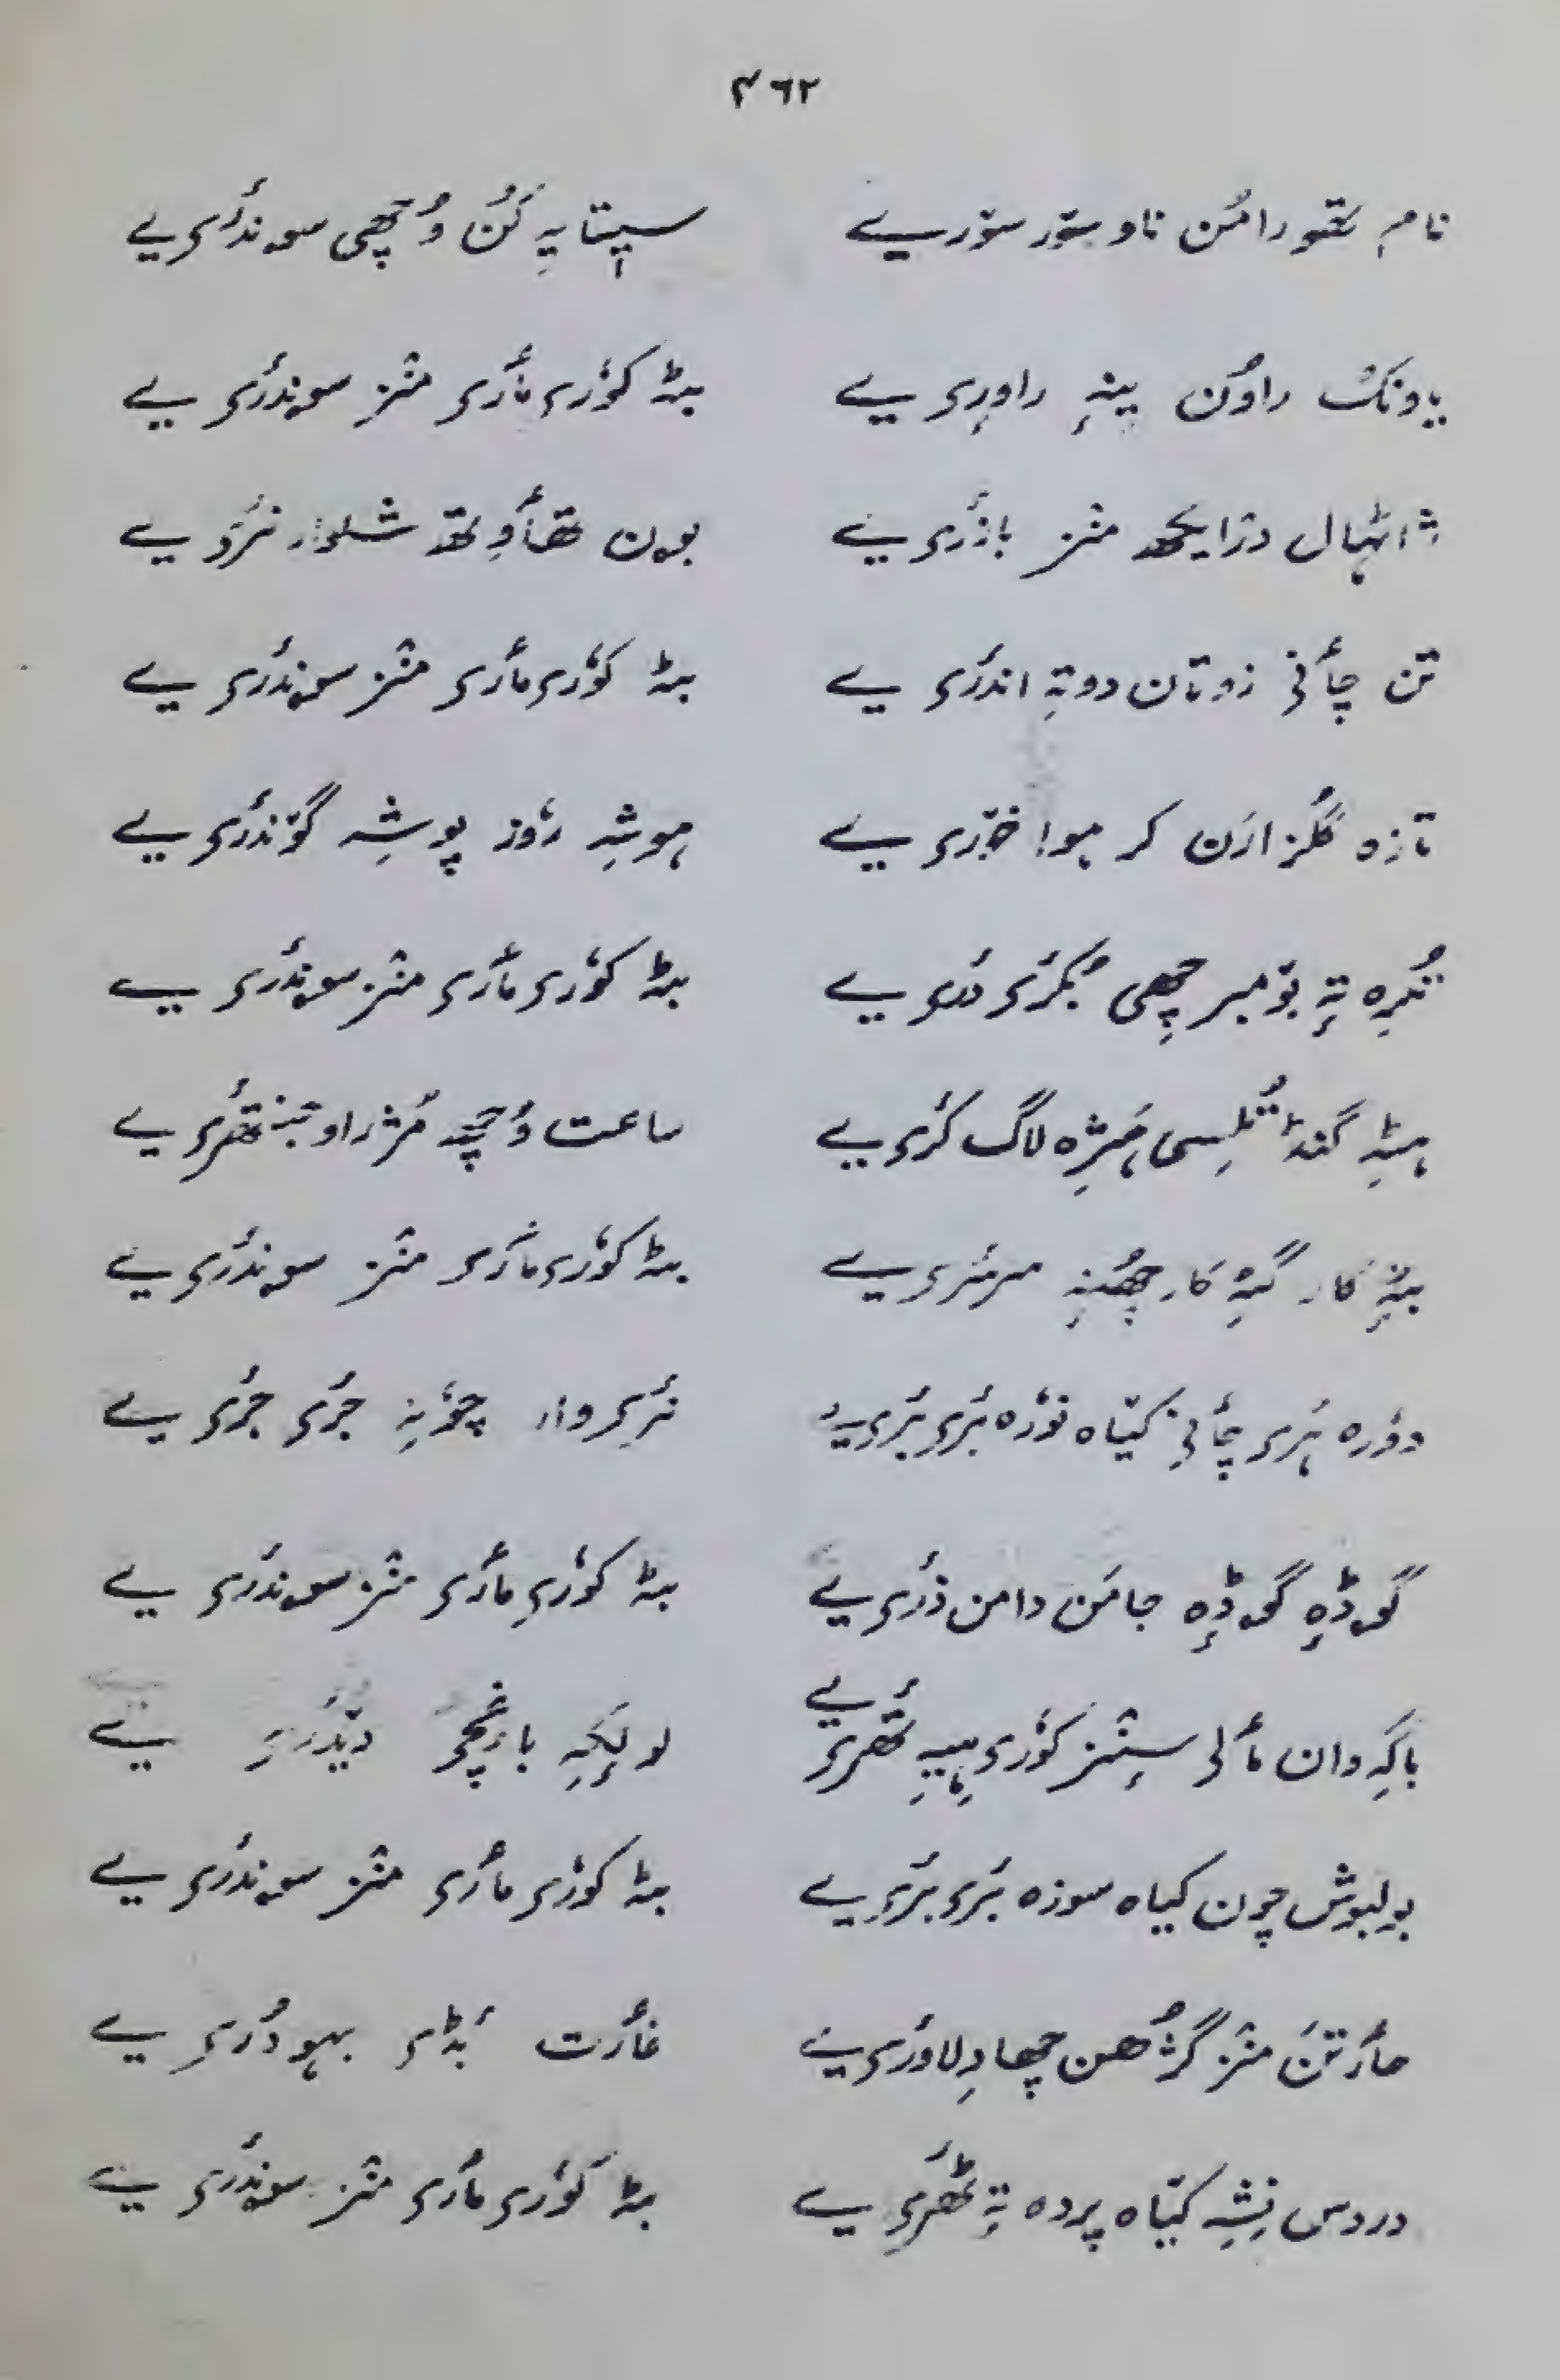 ۴۶۲
نامہِ تتھو رامُن ناو سۆر سۆرِیے سپتایہِ کَن وُچھی سوندٔری یے
راوُن ینہِ راوِری یے بٹہٕ کوٗری مٲری منٛز سوندٔری یے
درٛایکھ منٛز بازٔری یے بون تھٲوِتھ شلوار نرٔ یے
تن چٲنی زوتان دوتہِ اندٔری یے بٹہٕ کوٗری مٲری منٛز سوندٔری یے
تازہ گُلزارَن کر ہوا خۆری یے ہوشہِ روٗز پوشہِ گۆندٔری یے
تہٕ بۆمبر چھِی یے بٹہٕ کوٗری مٲری منٛز سوندٔری یے
ہٹہِ گنڈ تُلسی ہَژہ لاگ کٔری یے ساعت وُچھ مُژراو تھٔری یے
کار گہٕ کار چھُنہٕ سرسٔری یے بٹہٕ کوٗری مٲری منٛز سوندٔری یے
دوٗرہ ۂری چٲنی کیٛاہ نوٗرہ بٔری بٔری یے نٔری وار چوٗنہِ جٔری جٔری یے
گوڈہٕ گوڈہٕ جامَن دامن دٔری یے بٹہٕ کوٗری مٲری منٛز سوندٔری یے
باگہِ وان مٲلی سٕنٛز کوٗری ہیہِ تھٔری یے لولہٕکہِ باغٕچی یے
بولبوش چون کیاہ سوزہ بٔری بٔری یے بٹہٕ کوٗری مٲری منٛز سوندٔری یے
عارتَن منٛز گژُھن چھا دِلاؤری یے غارت بٔڈی بہودٔری یے
دردس نِشہِ کیٛاہ پردہ تہٕ ٹھٔری یے بٹہٕ کوٗری مٲری منٛز سوندٔری یے